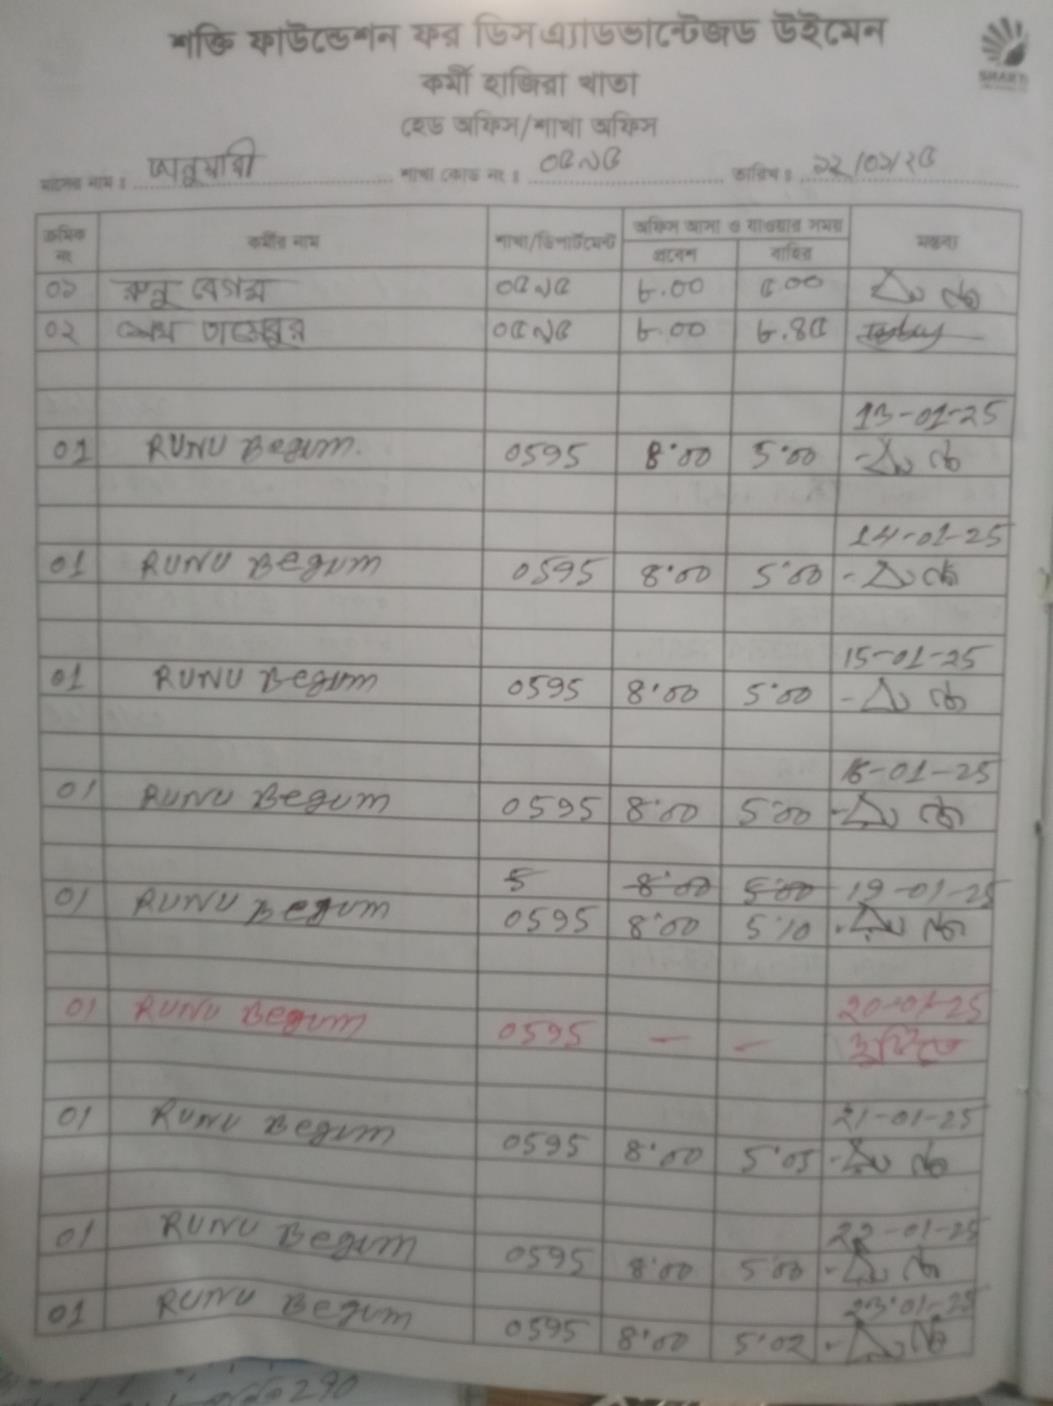 শক্তি ফাউন্ডেশন ফর ডিসএ্যাডভান্টেজড উইমেন
কর্মী হাজিরা খাতা
হেড অফিস/শাখা অফিস
মাসের নাম : জানুয়ারী শাখা কোড নং : ০৫৯৫ তারিখ : ১২/০১/২৫
ক্রমিক নং কর্মীর নাম শাখা/ডিপার্টমেন্ট অফিস আসা ও যাওয়ার সময় মন্তব্য
প্রবেশ বাহির
০১ রুনু বেগম ০৫৯৫ ৮.00 ৫.00
০২ শেখ ০৫৯৫ ৮.00 ৮.৪৫
13-01-25
01 RUNU Begum. 0595 8:00 5:00
14-01-25
01 RUNU Begum 0595 8:00 5:00
15-01-25
01 RUNU Begum 0595 8:00 5:00
16-01-25
01 RUNU Begum 0595 8:00 5:00
5 8:00 5:00 19-01-25
01 RUNU Begum 0595 8:00 5:10
20-01-25
01 RUNU Begum 0595 — — ছুটিতে
21-01-25
01 RUNU Begum 0595 8:00 5:05
22-01-25
01 RUNU Begum 0595 8:00 5:00
23-01-25
01 RUNU Begum 0595 8:00 5:02